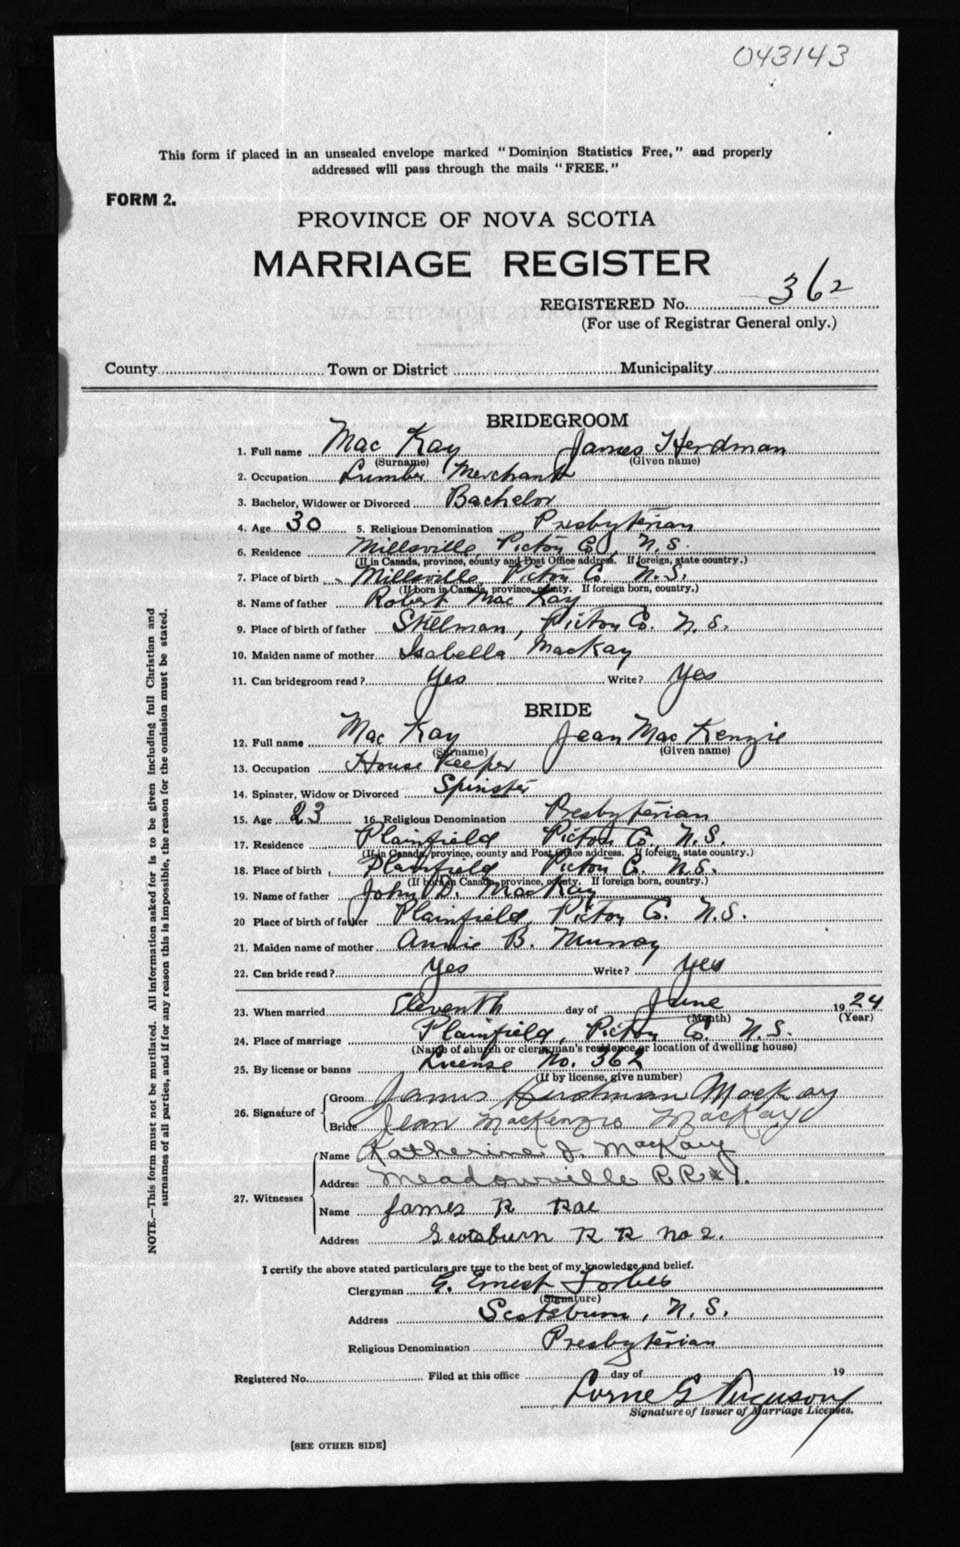 043143
This form if placed in an unsealed envelope marked "Dominion Statistics Free," and properly
addressed will pass through the mails "FREE."
FORM 2.
PROVINCE OF NOVA SCOTIA
MARRIAGE REGISTER
REGISTERED No. 362
(For use of Registrar General only.)
County Town or District Municipality
BRIDEGROOM
1. Full name Mac Kay James Herdman
(Surname) (Given name)
2. Occupation Lumber Merchant
3. Bachelor, Widower or Divorced Bachelor
4. Age 30 5. Religious Denomination Presbyterian
6. Residence Millsville, Pictou Co, N.S.
(If in Canada, province, county and Post Office address. If foreign, state country.)
7. Place of birth Millsville, Pictou Co. N.S.
(If born in Canada, province, county. If foreign born, country.)
8. Name of father Robert Mac Kay
9. Place of birth of father , Pictou Co. N.S.
10. Maiden name of mother Isabella MacKay
11. Can bridegroom read? Yes Write? Yes
BRIDE
12. Full name Mac Kay Jean Mac Kenzie
(Surname) (Given name)
13. Occupation House Keeper
14. Spinster, Widow or Divorced Spinster
15. Age 23 16. Religious Denomination Presbyterian
17. Residence Plainfield Pictou Co., N.S.
(If in Canada, province, county and Post Office address. If foreign, state country.)
18. Place of birth Plainfield Pictou Co. N.S.
(If born in Canada, province, county. If foreign born, country.)
19. Name of father John D. MacKay
20 Place of birth of father Plainfield, Pictou Co. N.S.
21. Maiden name of mother Annie B. Murray
22. Can bride read? Yes Write? yes
23. When married Eleventh day of June 1924
(Month) (Year)
24. Place of marriage Plainfield, Pictou Co. N.S.
(Name of church or clergyman's residence or location of dwelling house)
25. By license or banns License No. 362
(If by license, give number)
26. Signature of
Groom James Herdman MacKay
Bride Jean MacKenzie MacKay
27. Witnesses
Name Katherine J. MacKay
Address Meadowville R.R.#1.
Name James R Rae
Address Scotsburn R R no 2.
I certify the above stated particulars are true to the best of my knowledge and belief.
Clergyman G. Ernest Forbes
(Signature)
Address Scotsburn, N.S.
Religious Denomination Presbyterian
Registered No. Filed at this office day of 19
Lorne G Ferguson
Signature of Issuer of Marriage Licenses.
[SEE OTHER SIDE]
NOTE.—This form must not be mutilated. All information asked for is to be given including full Christian and
surnames of all parties, and if for any reason this is impossible, the reason for the omission must be stated.